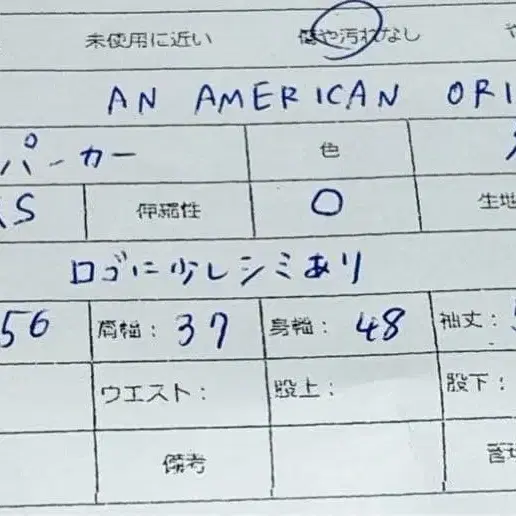 未使用に近い 傷や汚れなし
AN AMERICAN ORI
パーカー 色
S 伸縮性 〇 生地
ロゴに少しシミあり
56 肩幅: 37 身幅: 48 袖丈:
ウエスト: 股上: 股下:
備考